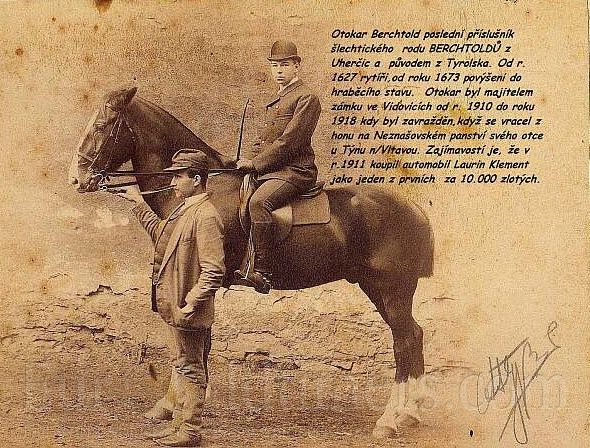 Otokar Berchtold poslední příslušník
šlechtického rodu BERCHTOLDŮ z
Uherčic a původem z Tyrolska. Od r.
1627 rytíři,od roku 1673 povýšeni do
hraběcího stavu. Otokar byl majitelem
zámku ve Viďovicích od r. 1910 do roku
1918 kdy byl zavražděn,když se vracel z
honu na Neznašovském panství svého otce
u Týnu n/Vltavou. Zajímavostí je, že v
r.1911 koupil automobil Laurin Klement
jako jeden z prvních za 10.000 zlotých.